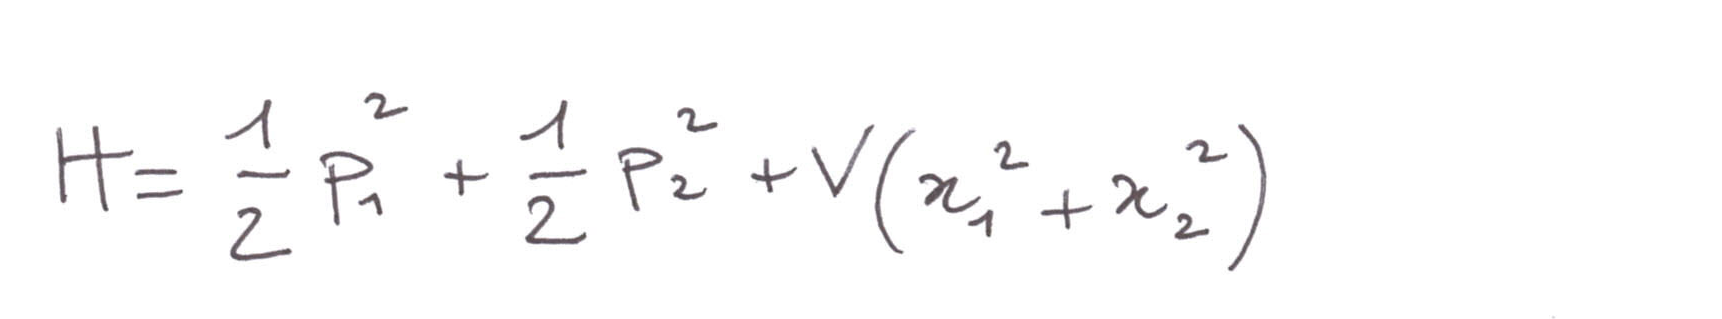 H = \frac{1}{2} p_1^2 + \frac{1}{2} p_2^2 + V(x_1^2 + x_2^2)